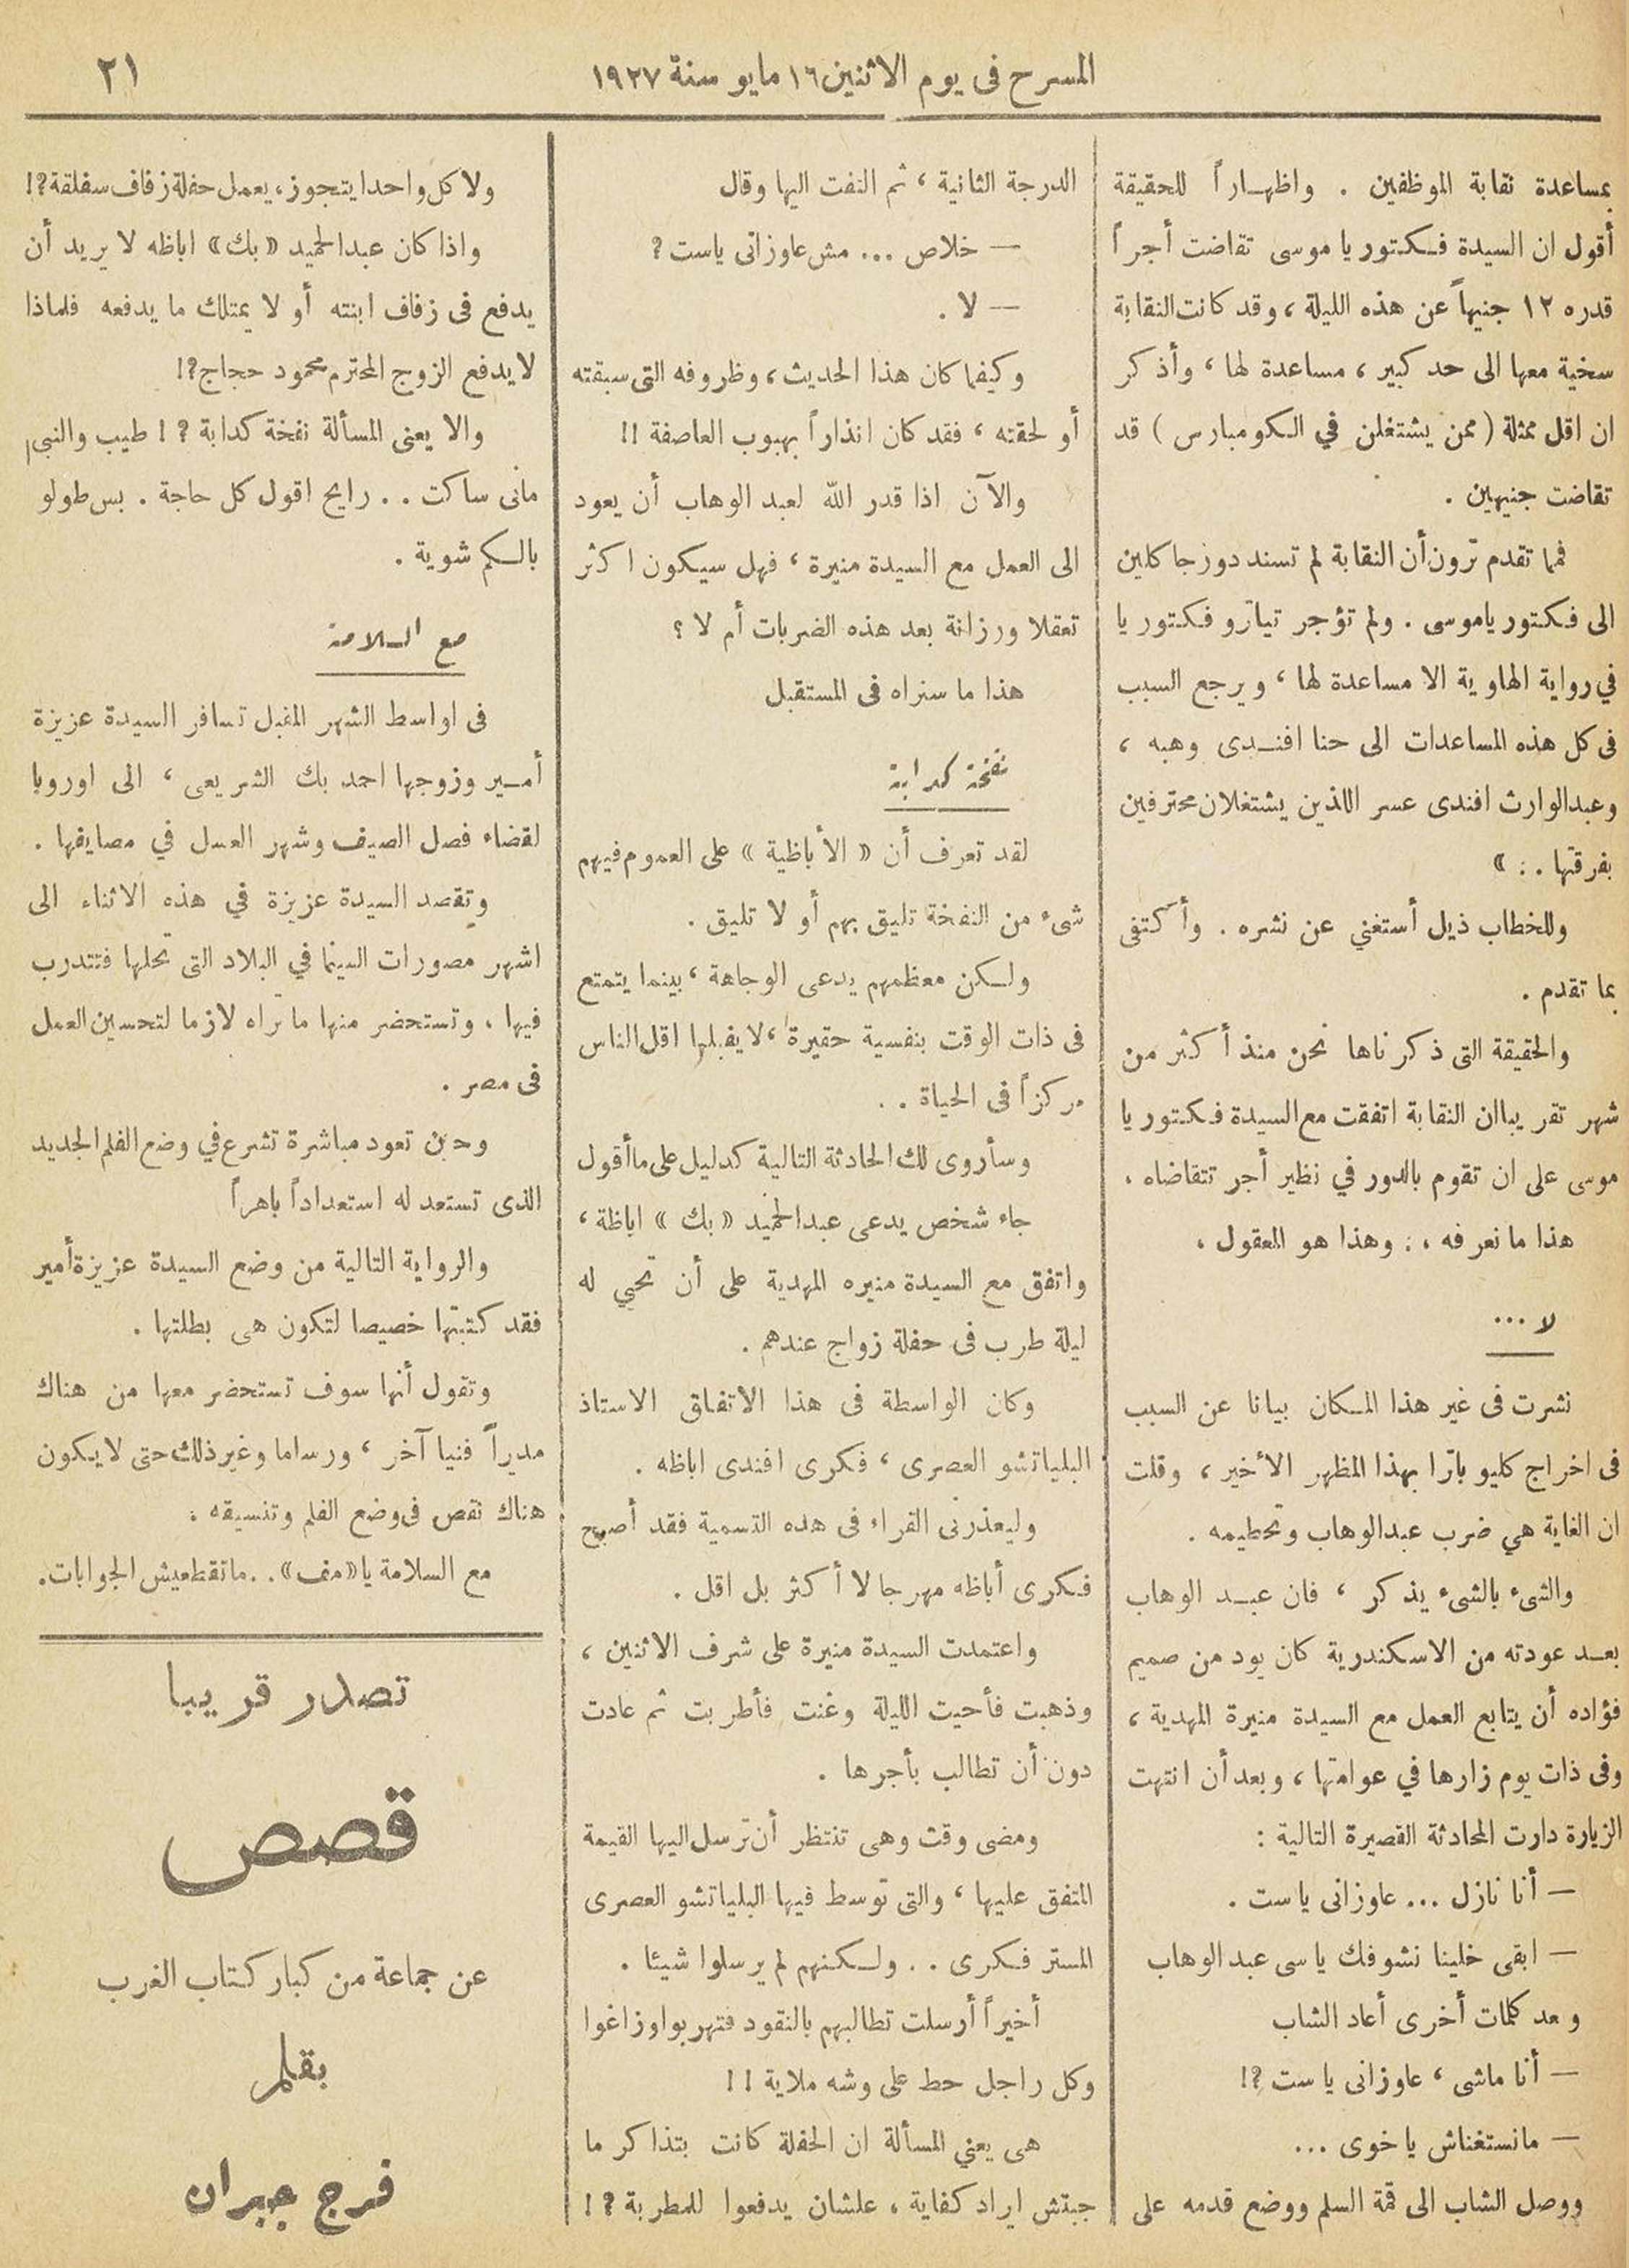 المسرح فى يوم الاثنين ١٦ مايو سنة ١٩٢٧
٢١
بمساعدة نقابة الموظفين . واظهاراً للحقيقة
أقول ان السيدة فكتوريا موسى تقاضت أجراً
قدره ١٢ جنيهاً عن هذه الليلة ، وقد كانت النقابة
سخية معها الى حد كبير ، مساعدة لها ، وأذكر
ان اقل ممثلة ( ممن يشتغلن في الكومبارس ) قد
تقاضت جنيهين .
فمما تقدم ترون أن النقابة لم تسند دور جاكلين
الى فكتوريا موسى . ولم تؤجر تياترو فكتوريا
في رواية الهاوية الا مساعدة لها ، ويرجع السبب
فى كل هذه المساعدات الى حنا افندى وهبه ،
وعبد الوارث افندى عسر اللذين يشتغلان محترفين
بفرقتها . : »
وللخطاب ذيل أستغني عن نشره . وأكتفى
بما تقدم .
والحقيقة التى ذكرناها نحن منذ أكثر من
شهر تقريبا ان النقابة اتفقت مع السيدة فكتوريا
موسى على ان تقوم بالدور في نظير أجر تتقاضاه .
هذا ما نعرفه . : وهذا هو المعقول .
لا ...
نشرت فى غير هذا المكان بيانا عن السبب
فى اخراج كليوباترا بهذا المظهر الأخير ، وقلت
ان الغاية هي ضرب عبدالوهاب وتحطيمه .
والشىء بالشىء يذكر ، فان عبد الوهاب
بعد عودته من الاسكندرية كان يود من صميم
فؤاده أن يتابع العمل مع السيدة منيرة المهدية ،
وفى ذات يوم زارها في عوامتها ، وبعد أن انتهت
الزيارة دارت المحادثة القصيرة التالية :
— أنا نازل ... عاوزانى ياست .
— ابقى خلينا نشوفك ياسى عبد الوهاب
وعد كلمات أخرى أعاد الشاب
— أنا ماشى ، عاوزانى ياست ?!
— مانستغناش ياخوى ...
ووصل الشاب الى قمة السلم ووضع قدمه على
الدرجة الثانية ، ثم التفت اليها وقال
— خلاص ... مش عاوزانى ياست ?
— لا .
وكيفما كان هذا الحديث ، وظروفه التى سبقته
أو لحقته ، فقد كان انذاراً بهبوب العاصفة !!
والآن اذا قدر الله لعبد الوهاب أن يعود
الى العمل مع السيدة منيرة ، فهل سيكون اكثر
تعقلا ورزانة بعد هذه الضربات أم لا ؟
هذا ما سنراه فى المستقبل
نفخة كدابة
لقد تعرف أن « الأباظية » على العموم فيهم
شىء من النفخة تليق بهم أو لا تليق .
ولكن معظمهم يدعى الوجاهة ، بينما يتمتع
فى ذات الوقت بنفسية حقيرة ، لا يقبلها اقل الناس
مركزاً فى الحياة . .
وسأروى لك الحادثة التالية كدليل على ما أقول
جاء شخص يدعى عبدالحميد « بك » اباظة ،
واتفق مع السيدة منيره المهدية على أن تحيي له
ليلة طرب فى حفلة زواج عندهم .
وكان الواسطة فى هذا الاتفاق الاستاذ
البلياتشو العصرى ، فكرى افندى اباظه .
وليعذرنى القراء فى هذه التسمية فقد أصبح
فكرى أباظه مهرجا لا أكثر بل اقل .
واعتمدت السيدة منيرة على شرف الاثنين ،
وذهبت فأحيت الليلة وغنت فأطربت ثم عادت
دون أن تطالب بأجرها .
ومضى وقت وهى تنتظر أن ترسل اليها القيمة
المتفق عليها ، والتى توسط فيها البلياتشو العصرى
المستر فكرى . . ولكنهم لم يرسلوا شيئا .
أخيراً أرسلت تطالبهم بالنقود فتهربوا وزاغوا
وكل راجل حط على وشه ملاية !!
هى يعني المسألة ان الحفلة كانت بتذاكر ما
جبتش ايراد كفاية ، علشان يدفعوا للمطربة ?!
ولا كل واحد ايتجوز ، يعمل حفلة زفاف سفلقة ?!
واذا كان عبدالحميد « بك » اباظه لا يريد أن
يدفع فى زفاف ابنته أو لا يمتلك ما يدفعه فلماذا
لايدفع الزوج المحترم محمود حجاج ?!
والا يعنى المسألة نفخة كدابة ?! طيب والنبى
مانى ساكت . . رايح اقول كل حاجة . بس طولو
بالكم شوية .
مع السلامة
فى اواسط الشهر المقبل تسافر السيدة عزيزة
أمير وزوجها احمد بك الشريعى ، الى اوروبا
لقضاء فصل الصيف وشهر العسل في مصايفها .
وتقصد السيدة عزيزة في هذه الاثناء الى
اشهر مصورات السينما في البلاد التى تحلها فتتدرب
فيها ، وتستحضر منها ما تراه لازما لتحسين العمل
فى مصر .
وحين تعود مباشرة تشرع في وضع الفلم الجديد
الذى تستعد له استعداداً باهراً
والرواية التالية من وضع السيدة عزيزة أمير
فقد كتبتها خصيصا لتكون هى بطلتها .
وتقول أنها سوف تستحضر معها من هناك
مديراً فنيا آخر ، ورساما وغير ذلك حتى لايكون
هناك نقص فى وضع الفلم وتنسيقه .
مع السلامة يا « منف » . . ماتقطعيش الجوابات .
تصدر قريبا
قصص
عن جماعة من كبار كتاب الغرب
بقلم
فرج جبران